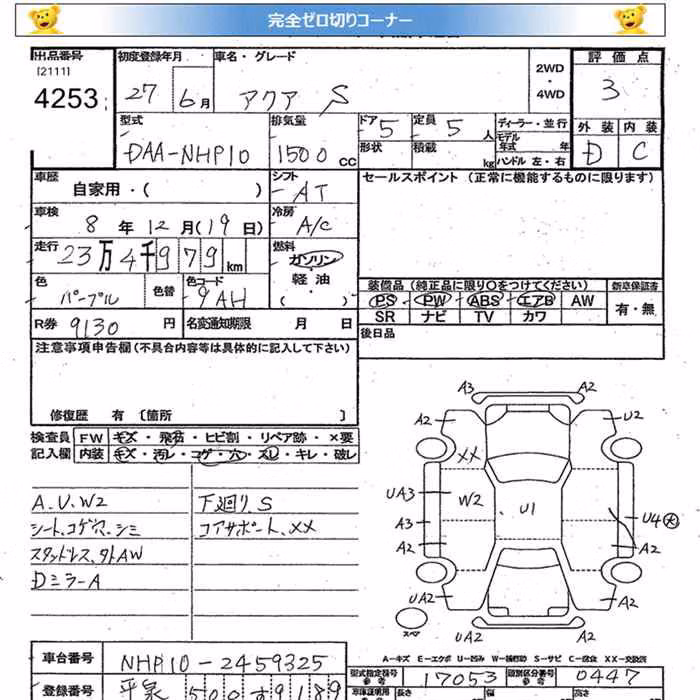 完全ゼロ切りコーナー
出品番号 初度登録年月 車名・グレード 評価点
[2111]
4253 27 6月 アクア S 2WD・4WD 3
型式 排気量 ドア 5 定員 5人 ディーラー・並行 外装 内装
DAA-NHP10 1500cc 形状 積載 kg モデル年式 年 D C
ハンドル 左・右
車歴 シフト セールスポイント (正常に機能するものに限ります)
自家用・( ) AT
車検 冷房
8年12月(19日) A/C
走行 燃料
23万4千979km ガソリン・軽油・( )
色 色替 色コード 装備品 (純正品に限り○をつけてください) 新車保証書
パープル 9AH PS PW ABS エアB AW 有・無
SR ナビ TV カワ
R券 9130円 名変通知期限 月 日
後日品
注意事項申告欄 (不具合内容等は具体的に記入して下さい)
修復歴 有 〔箇所 〕
検査員 FW キズ・飛石・ヒビ割・リペア跡・×要
記入欄 内装 キズ・汚レ・コゲ・穴・スレ・キレ・破レ
A.U.W2 下廻りS
シート、コゲ穴、シミ コアサポート、XX
スタッドレス、タトAW
DミラーA
A3 A2
A2 U2
XX
UA3 W2 U1 U4
A3
A2 A2
UA2 A2
スペア UA2 A2
A-キズ E-エクボ U-凹み W-補修跡 S-サビ C-腐食 XX-交換済
車台番号 NHP10-2459325 型式指定番号 参考 17053 類別区分番号 参考 0447
登録番号 平泉 500 す 9189 車庫証明用 長さ 幅 高さ